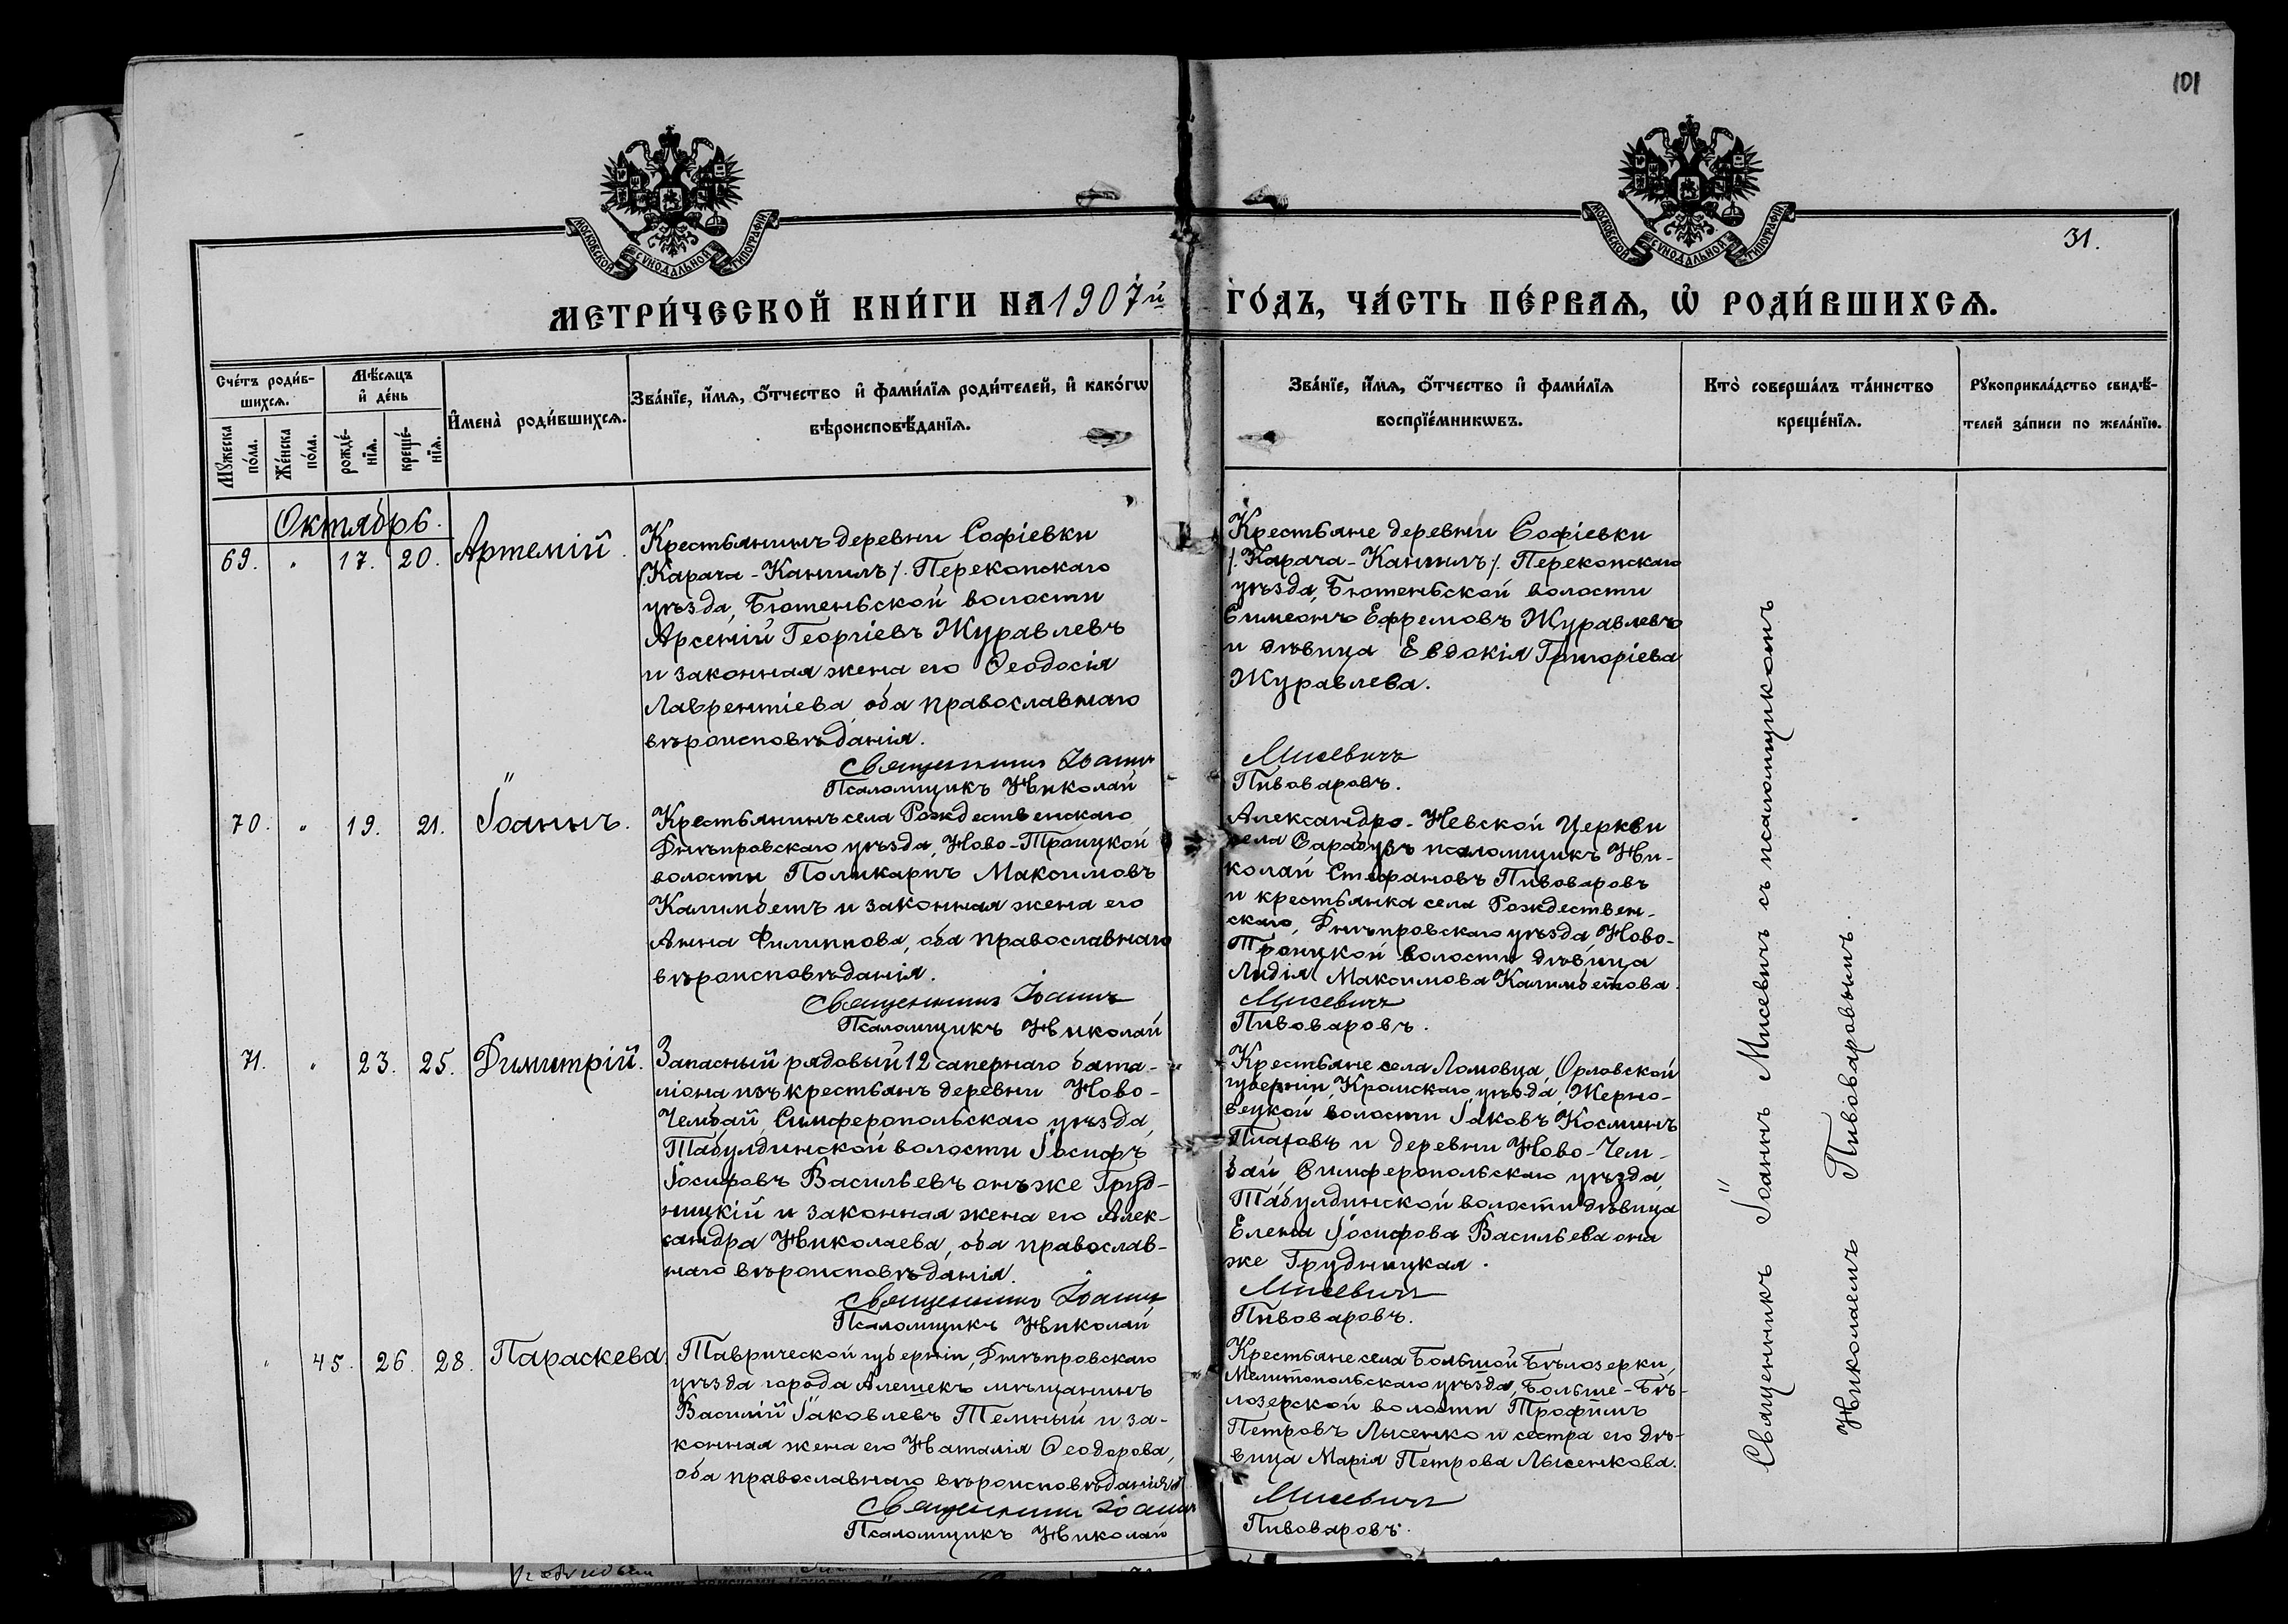 101
МОСКОВСКОЙ СѴНОДАЛЬНОЙ ТИПОГРАФІИ
МОСКОВСКОЙ СѴНОДАЛЬНОЙ ТИПОГРАФІИ
31.
МЕТРИ́ЧЕСКОЙ КНИ́ГИ НА 1907й ГО́ДЪ, ЧА́СТЬ ПЕ́РВАЯ, Ѡ҆ РОДИ́ВШИХСЯ.
Сче́тъ роди́в-
шихся.
Мꙋ́жеска по́ла.
Же́нска по́ла.
Мѣ́сяцъ
и҆ де́нь
рожде́-
нїя.
креще́-
нїя.
И҆мена̀ роди́вшихся.
Зва́нїе, и҆́мя, ѻ҆́тчество и҆ фами́лїя роди́телей, и҆ како́гѡ
вѣроисповѣ́данїя.
Зва́нїе, и҆́мя, ѻ҆́тчество и҆ фами́лїя
воспрїе́мникѡвъ.
Кто̀ соверша́лъ та́инство
креще́нїя.
Рꙋкоприкла́дство свидѣ́-
телей за́писи по жела́нїю.
Октябрь.
69. " 17. 20. Артемій.
Крестьянинъ деревни Софіевки
/Карача-Кангилъ/. Перекопскаго
уѣзда, Бютеньской волости
Арсеній Георгіевъ Журавлевъ
и законная жена его Ѳеодосія
Лаврентіева, оба православнаго
вѣроисповѣданія.
Крестьяне деревни Софіевки
/. Карача-Кангилъ/. Перекопскаго
уѣзда, Бютеньской волости
Симеонъ Ефремовъ Журавлевъ
и дѣвица Евдокія Григоріева
Журавлева.
Священникъ Іоаннъ Мисевичъ
Псаломщикъ Николай Пивоваровъ.
70. " 19. 21. Іоаннъ.
Крестьянинъ села Рождественскаго
Днѣпровскаго уѣзда, Ново-Троицкой
волости Поликарпъ Максимовъ
Калимбетъ и законная жена его
Анна Филиппова, оба православнаго
вѣроисповѣданія.
Александро-Невской Церкви
села Сарабузъ псаломщикъ Ни-
колай Стефановъ Пивоваровъ
и крестьянка села Рождествен-
скаго, Днѣпровскаго уѣзда, Ново-
Троицкой волости дѣвица
Лидія Максимова Калимбетова.
Священникъ Іоаннъ Мисевичъ
Псаломщикъ Николай Пивоваровъ.
71. " 23. 25. Димитрій.
Запасный рядовый 12 сапернаго бата-
ліона изъ крестьянъ деревни Ново-
Чембай, Симферопольскаго уѣзда,
Табулдинской волости Іосифъ
Іосифовъ Васильевъ онъ же Груд-
ницкій и законная жена его Алек-
сандра Николаева, оба православ-
наго вѣроисповѣданія.
Крестьяне села Ломовца, Орловской
губерніи, Кромскаго уѣзда, Жерно-
вецкой волости Іаковъ Косминъ
и деревни Ново-Чем-
бай, Симферопольскаго уѣзда,
Табулдинской волости дѣвица
Елена Іосифова Васильева она
же Грудницкая.
Священникъ Іоаннъ Мисевичъ
Псаломщикъ Николай Пивоваровъ.
" 45. 26. 28. Параскева
Таврической губерніи, Днѣпровскаго
уѣзда города Алешекъ мѣщанинъ
Василій Іаковлевъ Темный и за-
конная жена его Наталія Ѳеодорова,
оба православнаго вѣроисповѣданія.
Крестьяне села Большой Бѣлозерки,
Мелитопольскаго уѣзда, Больше-Бѣ-
лозерской волости Трофимъ
Петровъ Лысенко и сестра его дѣ-
вица Марія Петрова Лысенкова.
Священникъ Іоаннъ Мисевичъ
Псаломщикъ Николай Пивоваровъ.
Священникъ Іоаннъ Мисевичъ съ псаломщикомъ
Николаемъ Пивоваровымъ.